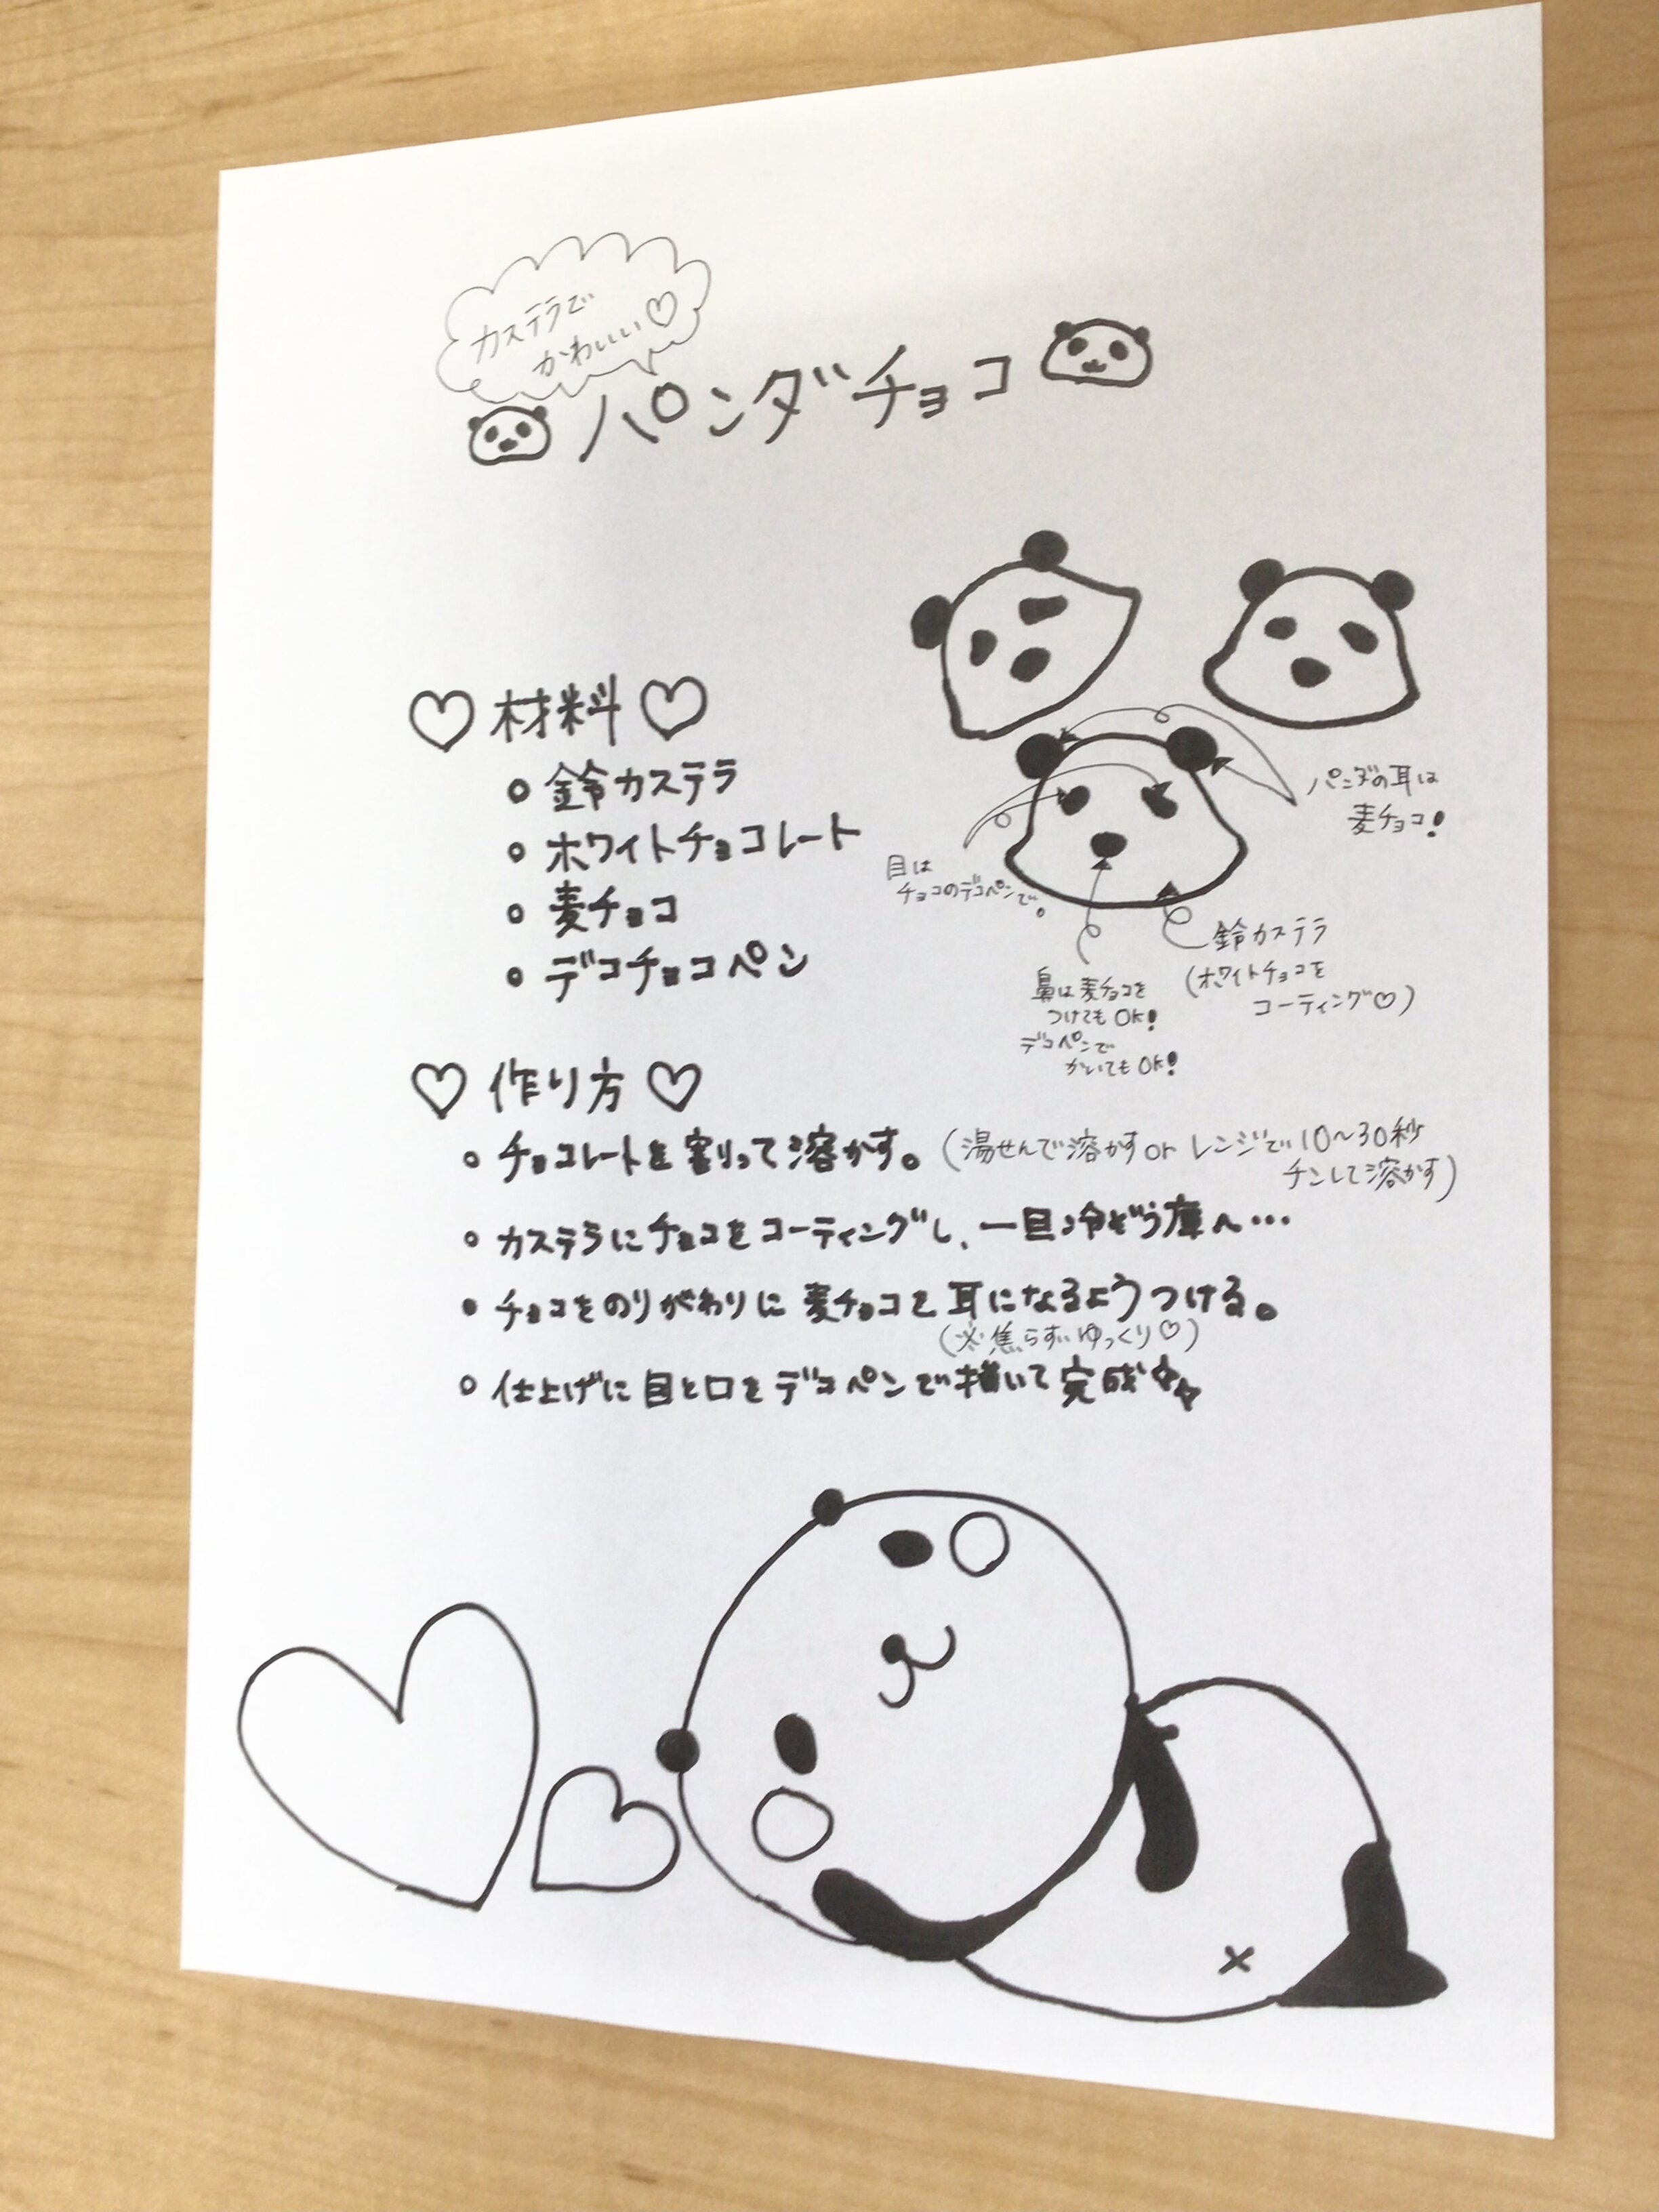 カステラで
かわいい♡
パンダチョコ
♡材料♡
○ 鈴カステラ
○ ホワイトチョコレート
○ 麦チョコ
○ デコチョコペン
パンダの耳は
麦チョコ!
目は
チョコのデコペンで。
鼻は麦チョコを
つけてもOK!
デコペンで
かいてもOK!
鈴カステラ
(ホワイトチョコを
コーティング♡)
♡作り方♡
○ チョコレートを割って溶かす。(湯せんで溶かす or レンジで10〜30秒
チンして溶かす)
○ カステラにチョコをコーティングし、一旦冷ぞう庫へ…
● チョコをのりがわりに麦チョコを耳になるようつける。
(※焦らずゆっくり♡)
○ 仕上げに目と口をデコペンで描いて完成☆☆